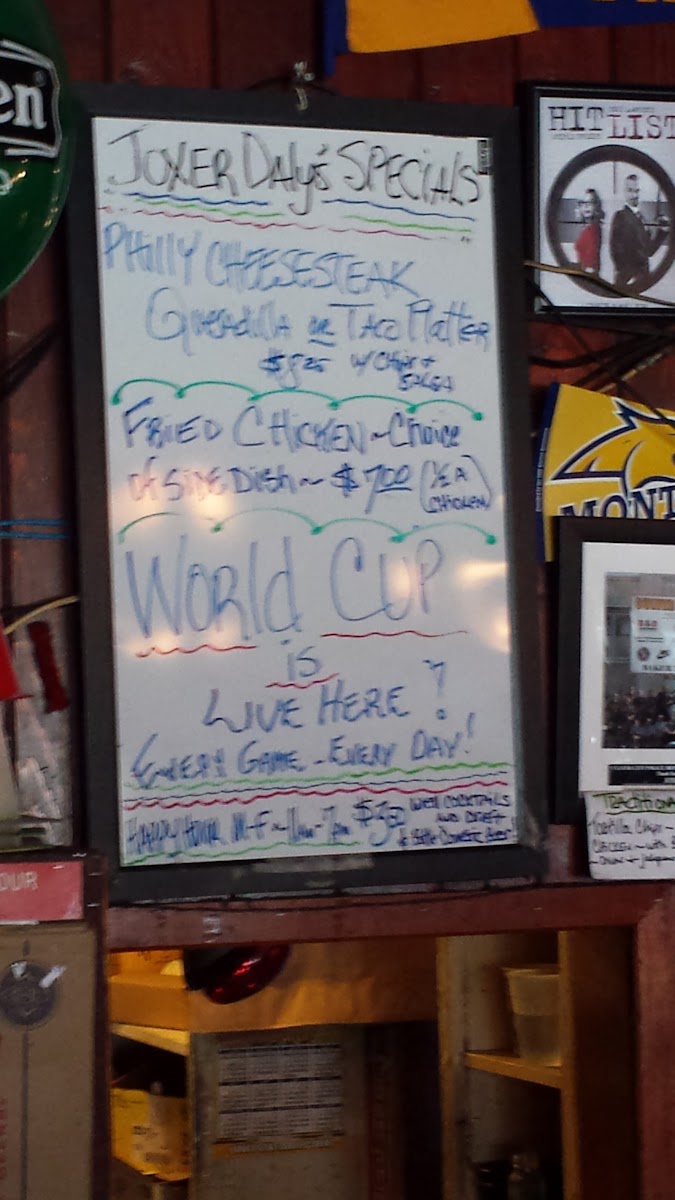 en
JOXER DALY'S SPECIALS
PHILLY CHEESESTEAK
QUESADILLA OR TACO PLATTER
$8.25 W/ CHIPS + SALSA
FRIED CHICKEN ~ CHOICE
OF SIDE DISH ~ $7.00 (½ A CHICKEN)
WORLD CUP
IS
LIVE HERE!
EVERY GAME - EVERY DAY!
HAPPY HOUR M-F ~ 11am-7pm
WELL COCKTAILS
AND DRAFT
HIT LIST
MONT
TRADITIONA
TORTILLA CHIPS ~
OUR